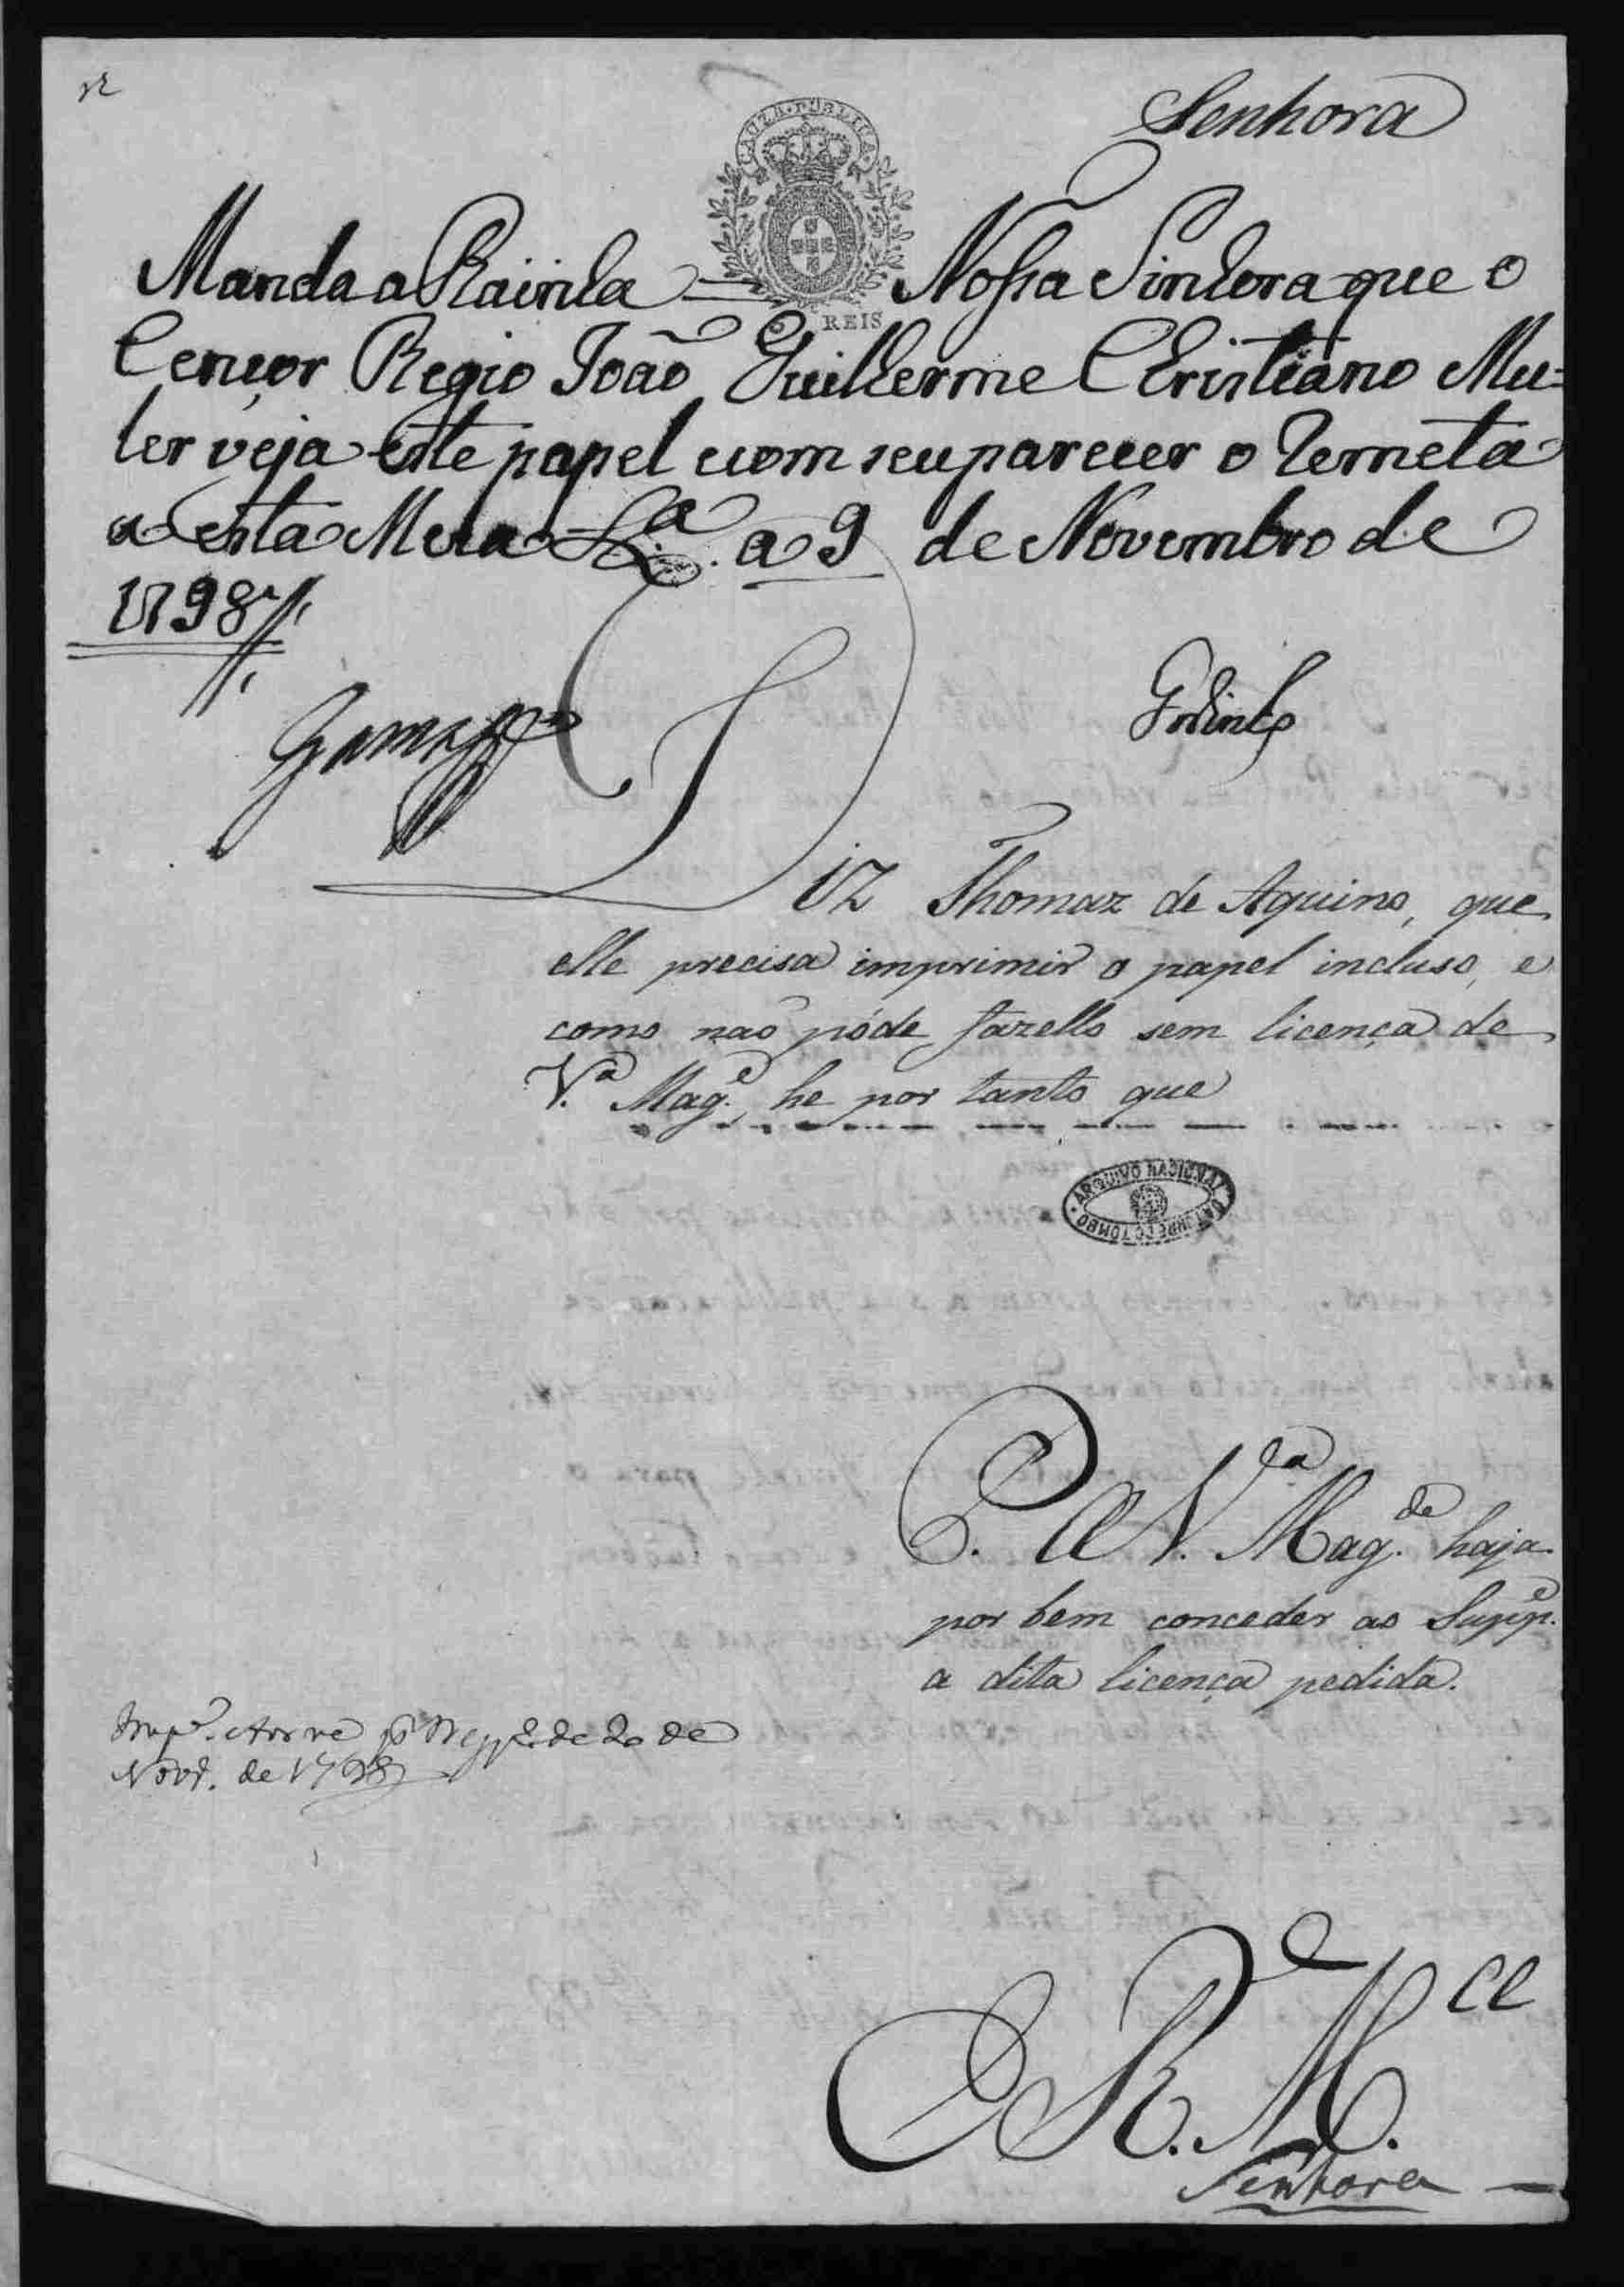 Senhora
CAUZA PUBLICA
REIS
Manda a Rainha Nossa Sinhora que o
Cençor Regio João Guilherme Christiano Mu=
ler veja este papel e com seu parecer o remeta
a esta Meza Lx.ª a 9 de Novembro de
1798
Godinho
Diz Thomaz de Aquino, que
elle precisa imprimir o papel incluso, e
como naõ póde fazello sem licença de
V.ª Mag.e, he por tanto que
ARQUIVO NACIONAL DA TORRE DO TOMBO
P. a V.ª Mag.de haja
por bem conceder ao Supp.e
a dita licença pedida.
de 20 de
Novr. de 1798
E R. M.ce
Sinhora